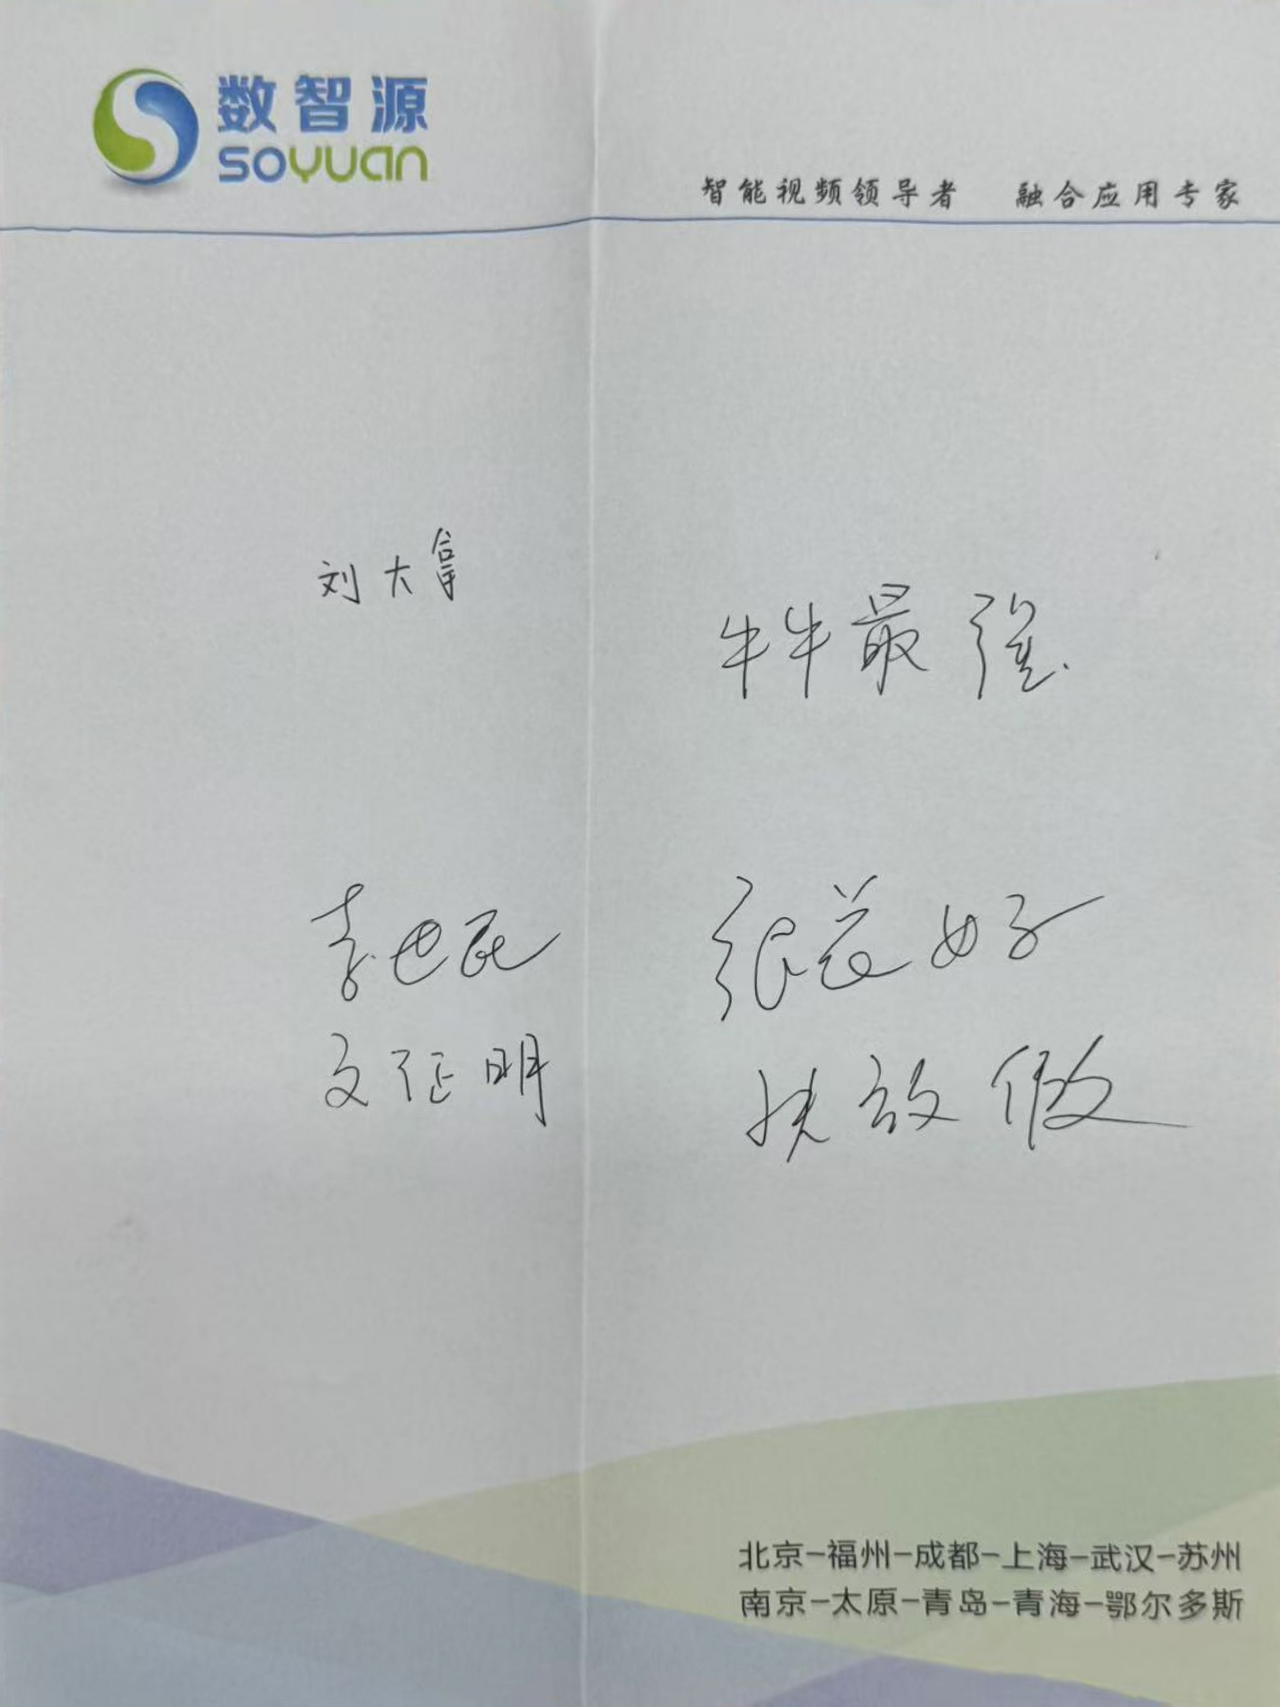 数智源
SOYUAN
智能视频领导者 融合应用专家
刘大拿
牛牛最强
李世民
张美好
文征明
快放假
北京-福州-成都-上海-武汉-苏州
南京-太原-青岛-青海-鄂尔多斯